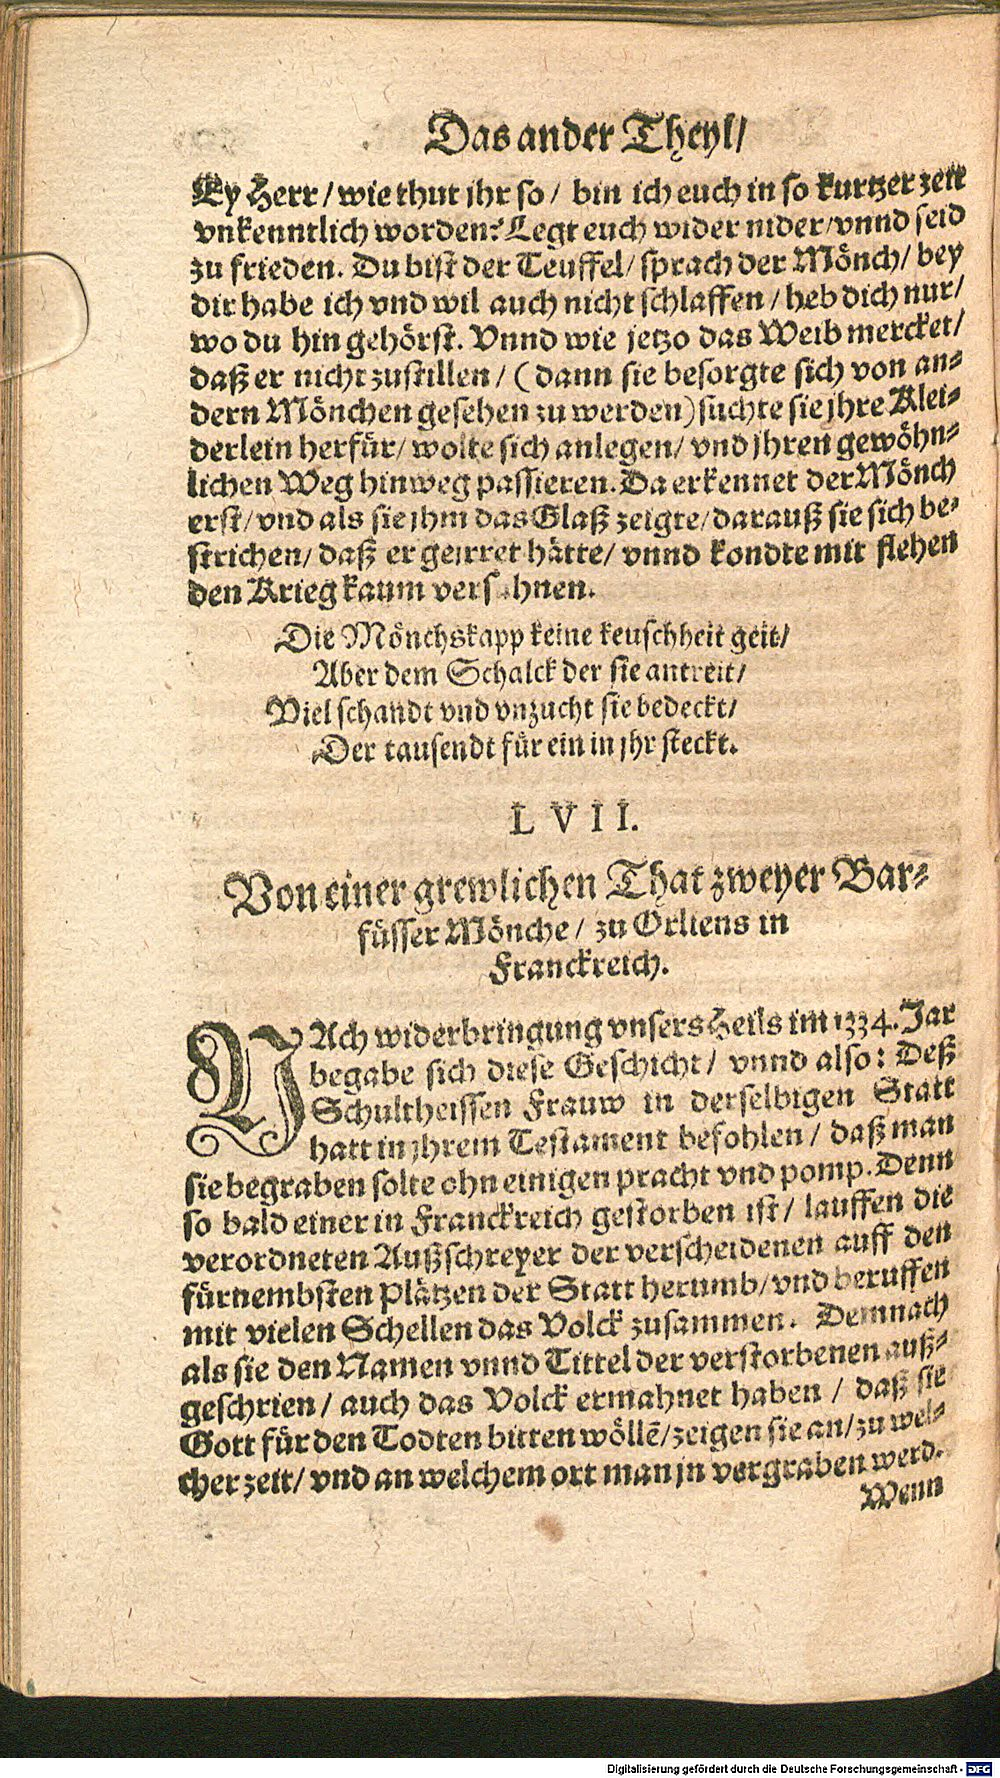 Das ander Theyl/
Ey Herr/ wie thut jhr so/ bin ich euch in so kurtzer zeit
vnkenntlich worden? Legt euch wider nider/ vnnd seid
zu frieden. Du bist der Teuffel/ sprach der Mönch/ bey
dir habe ich vnd wil auch nicht schlaffen/ heb dich nur/
wo du hin gehörst. Vnnd wie jetzo das Weib mercket/
daß er nicht zustillen/ (dann sie besorgte sich von an-
dern Mönchen gesehen zu werden) suchte sie jhre Klei-
derlein herfür/ wolte sich anlegen/ vnd jhren gewöhn-
lichen Weg hinweg passieren. Da erkennet der Mönch
erst/ vnd als sie jhm das Glaß zeigte/ darauß sie sich be-
strichen/ daß er geirret hätte/ vnnd kondte mit flehen
den Krieg kaum versöhnen.
Die Mönchskapp keine keuschheit geit/
Aber dem Schalck der sie antreit/
Viel schandt vnd vnzucht sie bedeckt/
Der tausendt für ein in jhr steckt.
LVII.
Von einer grewlichen That zweyer Bar-
füsser Mönche/ zu Orliens in
Franckreich.
NAch widerbringung vnsers Heils im 1334. Jar
begabe sich diese Geschicht/ vnnd also: Deß
Schultheissen Frauw in derselbigen Statt
hatt in jhrem Testament befohlen/ daß man
sie begraben solte ohn einigen pracht vnd pomp. Denn
so bald einer in Franckreich gestorben ist/ lauffen die
verordneten Außschreyer der verscheidenen auff den
fürnembsten Plätzen der Statt herumb/ vnd beruffen
mit vielen Schellen das Volck zusammen. Demnach
als sie den Namen vnnd Tittel der verstorbenen auß-
geschrien/ auch das Volck ermahnet haben/ daß sie
Gott für den Todten bitten wöllē/ zeigen sie an/ zu wel-
cher zeit/ vnd an welchem ort man jn vergraben werd.
Wenn
Digitalisierung gefördert durch die Deutsche Forschungsgemeinschaft - DFG